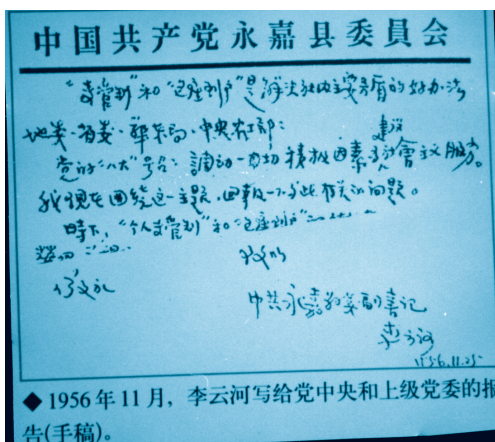 中国共产党永嘉县委員会
“专管制”和“包产到户”是解决社内主要矛盾的好办法
地委·省委·华东局·中央农工部：
建设
党的“八大”号召：調动一切积极因素为社會主义服务。
我现在围绕这一主题，回报一下与此有关的问题。
時下，“个人专管制”和“包产到户”
中共永嘉县委副書记
李云河
1956.11.25
◆ 1956年11月，李云河写给党中央和上级党委的报
告(手稿)。